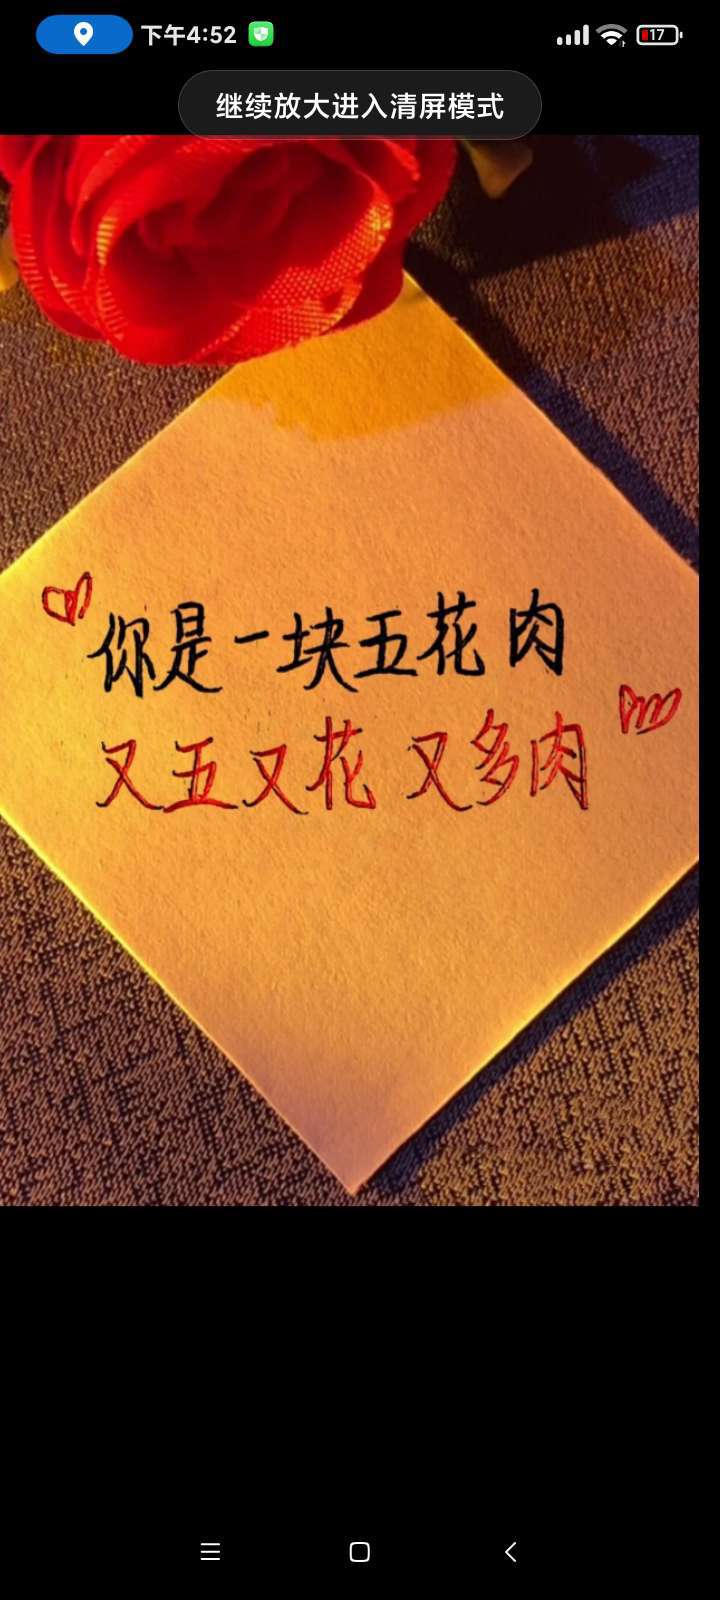 下午4:52
17
继续放大进入清屏模式
你是一块五花肉
又五又花 又多肉